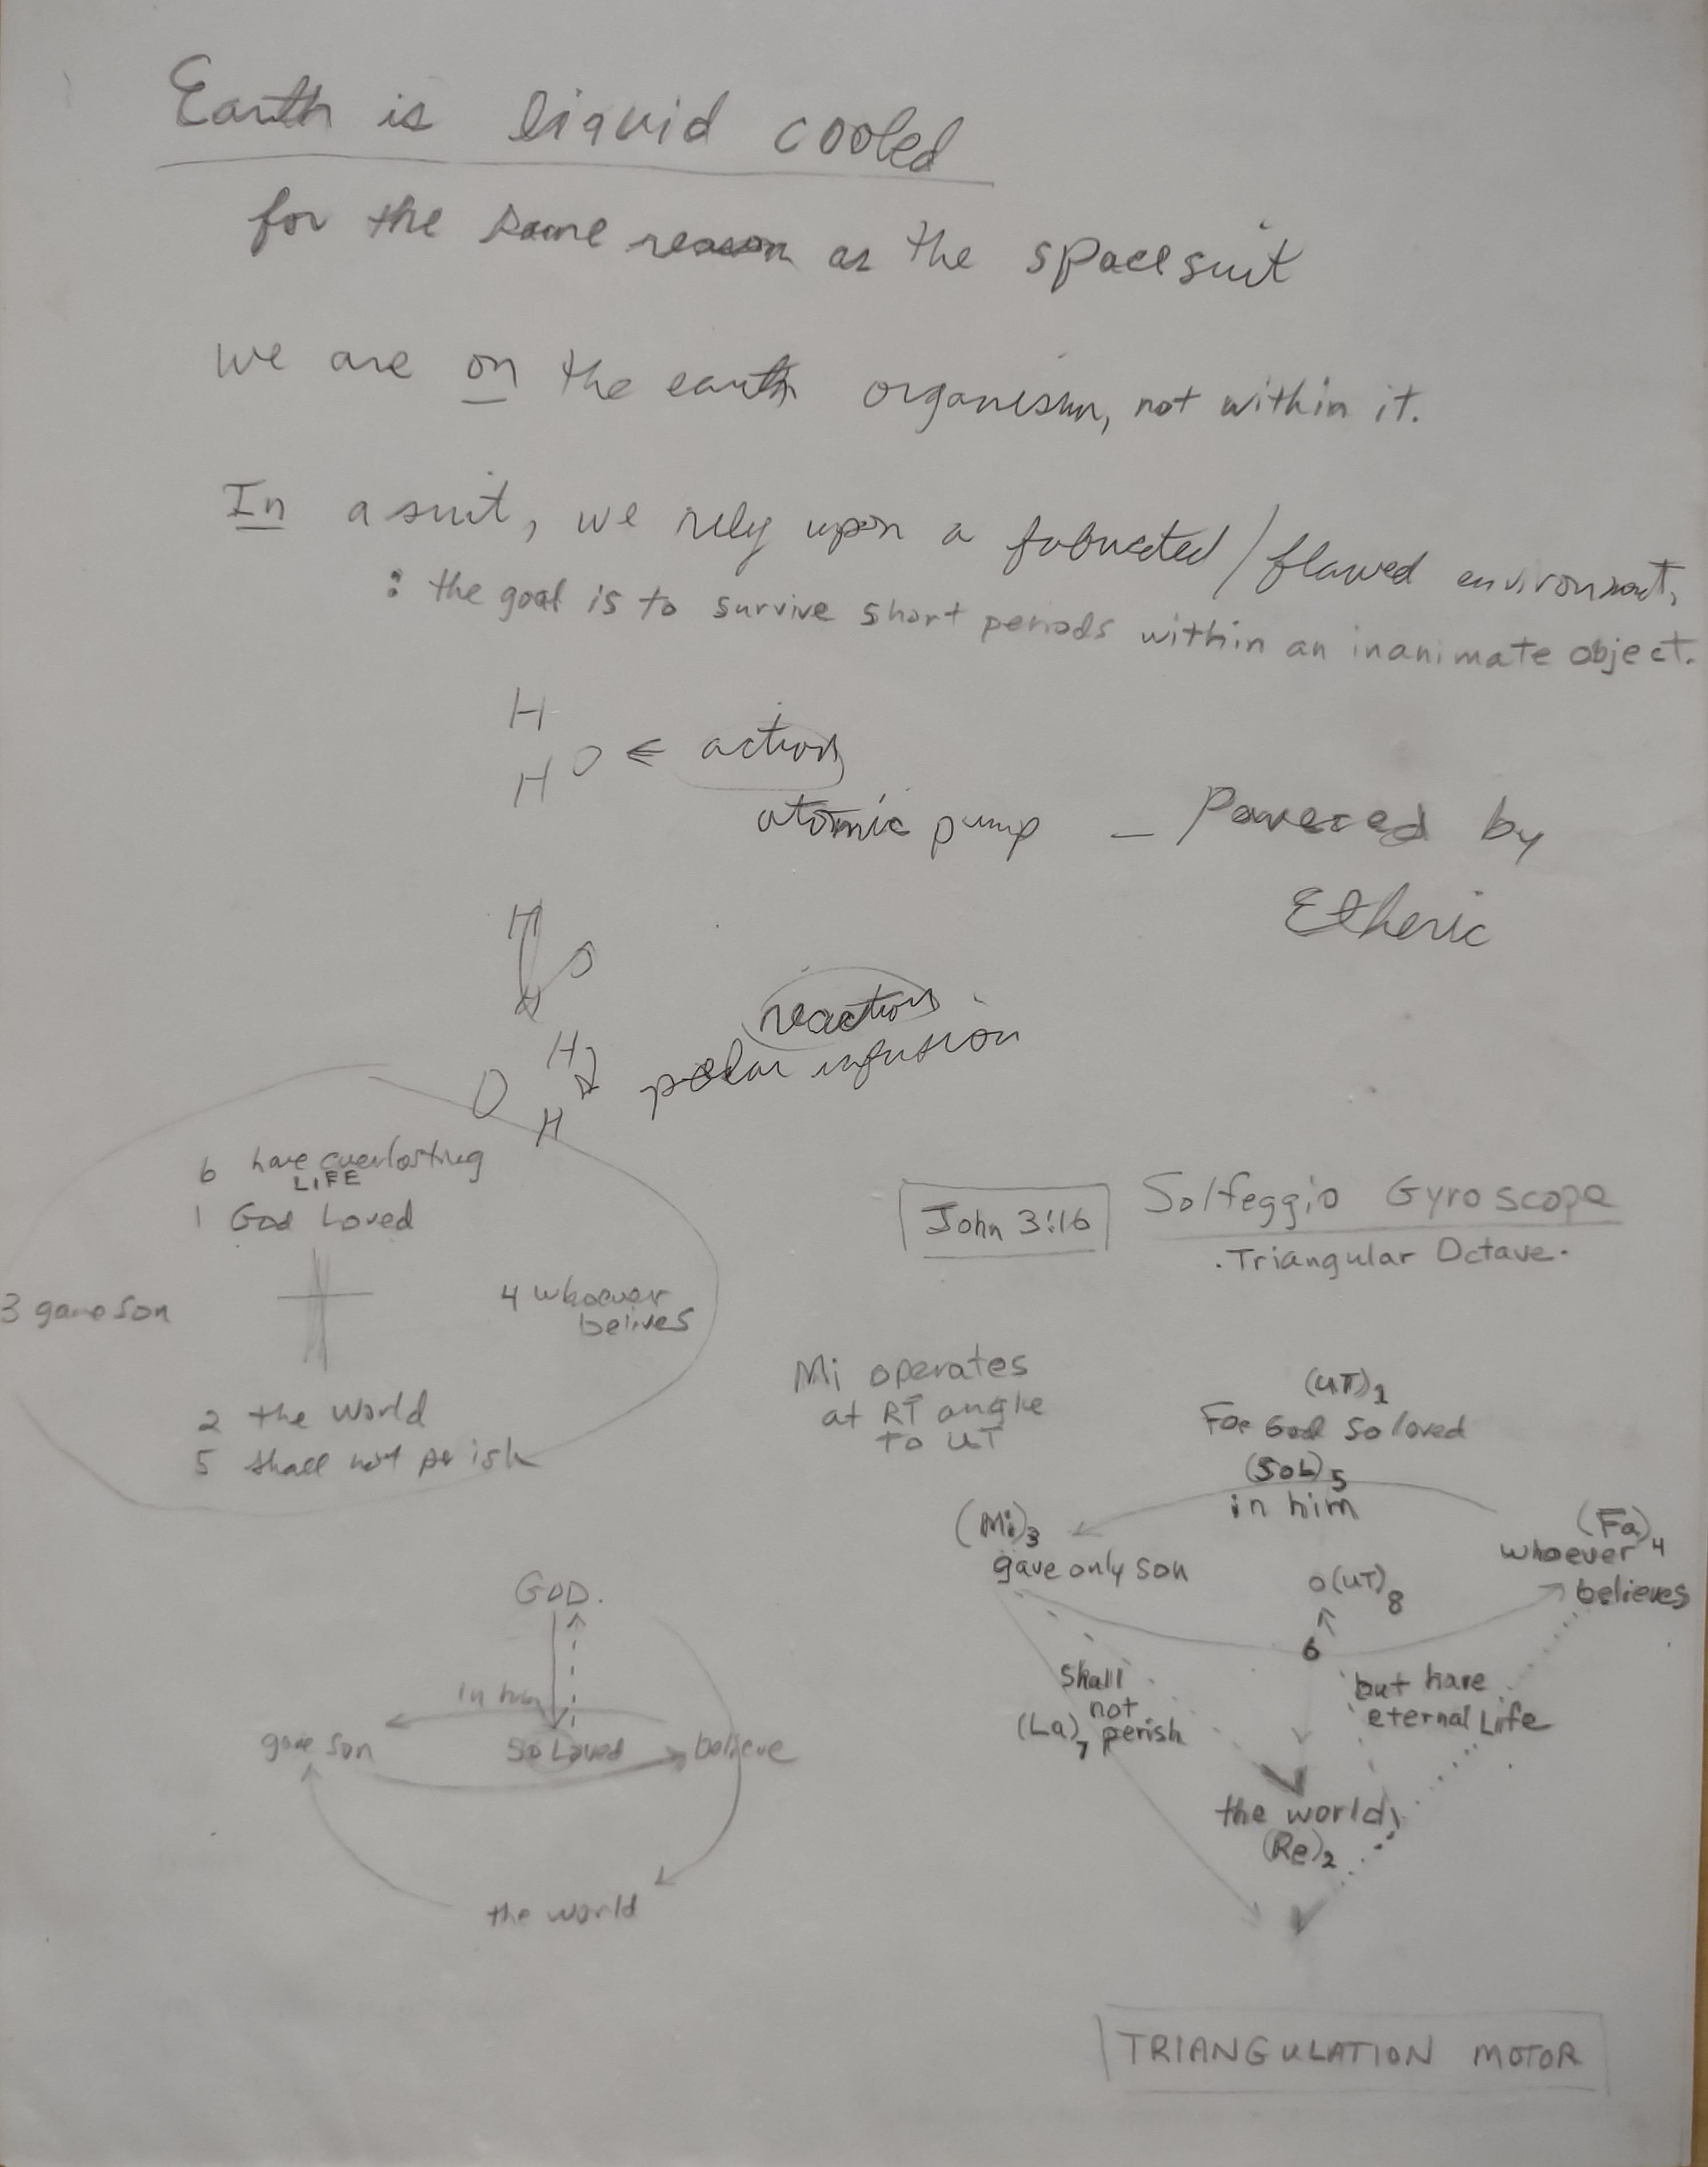 Earth is liquid cooled
for the same reason as the spacesuit
we are on the earth organism, not within it.
In a suit, we rely upon a fabricated / flawed environment,
: the goal is to survive short periods within an inanimate object.
H
H O ← action
atomic pump – Powered by
Etheric
H
O
H
reaction
polar infusion
H
O
H
6 have everlasting
LIFE
1 God Loved
3 gave son
4 whoever
belives
2 the World
5 shall not perish
John 3:16
Solfeggio Gyroscope
. Triangular Octave .
Mi operates
at RT angle
to UT
(UT)1
For God so loved
(Sol)5
in him
(Mi)3
gave only son
(Fa)4
whoever
believes
o(UT)8
6
shall
not
(La)7 perish
but have
eternal Life
the world
(Re)2
GOD.
in him
gave son
So Loved
believe
the world
TRIANGULATION MOTOR